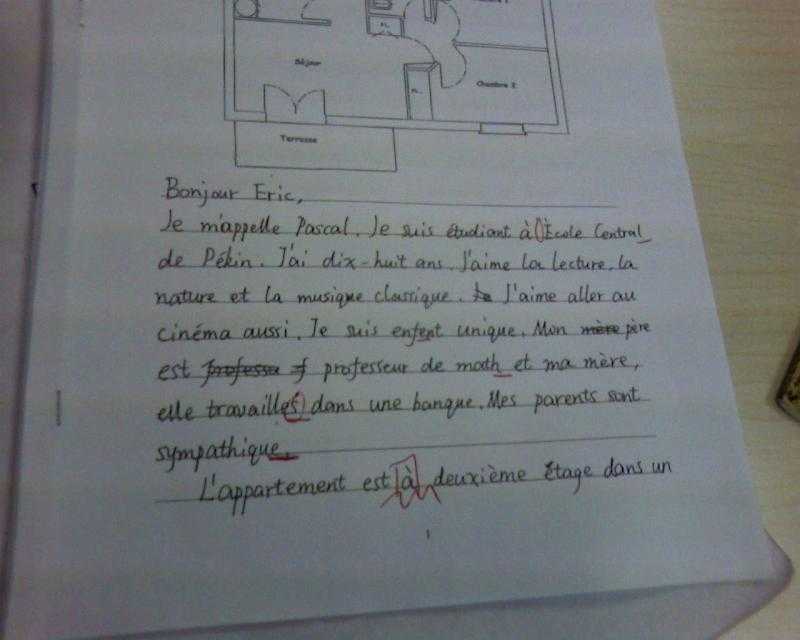 PL.
Séjour
PL.
Chambre 2
Terrasse
Bonjour Eric,
Je m'appelle Pascal. Je suis étudiant à École Central
de Pékin. J'ai dix-huit ans. J'aime la lecture, la
nature et la musique classique. Je J'aime aller au
cinéma aussi. Je suis enfent unique. Mon mère père
est professeu f professeur de math et ma mère,
elle travailles dans une banque. Mes parents sont
sympathique.
L'appartement est à deuxième étage dans un
1